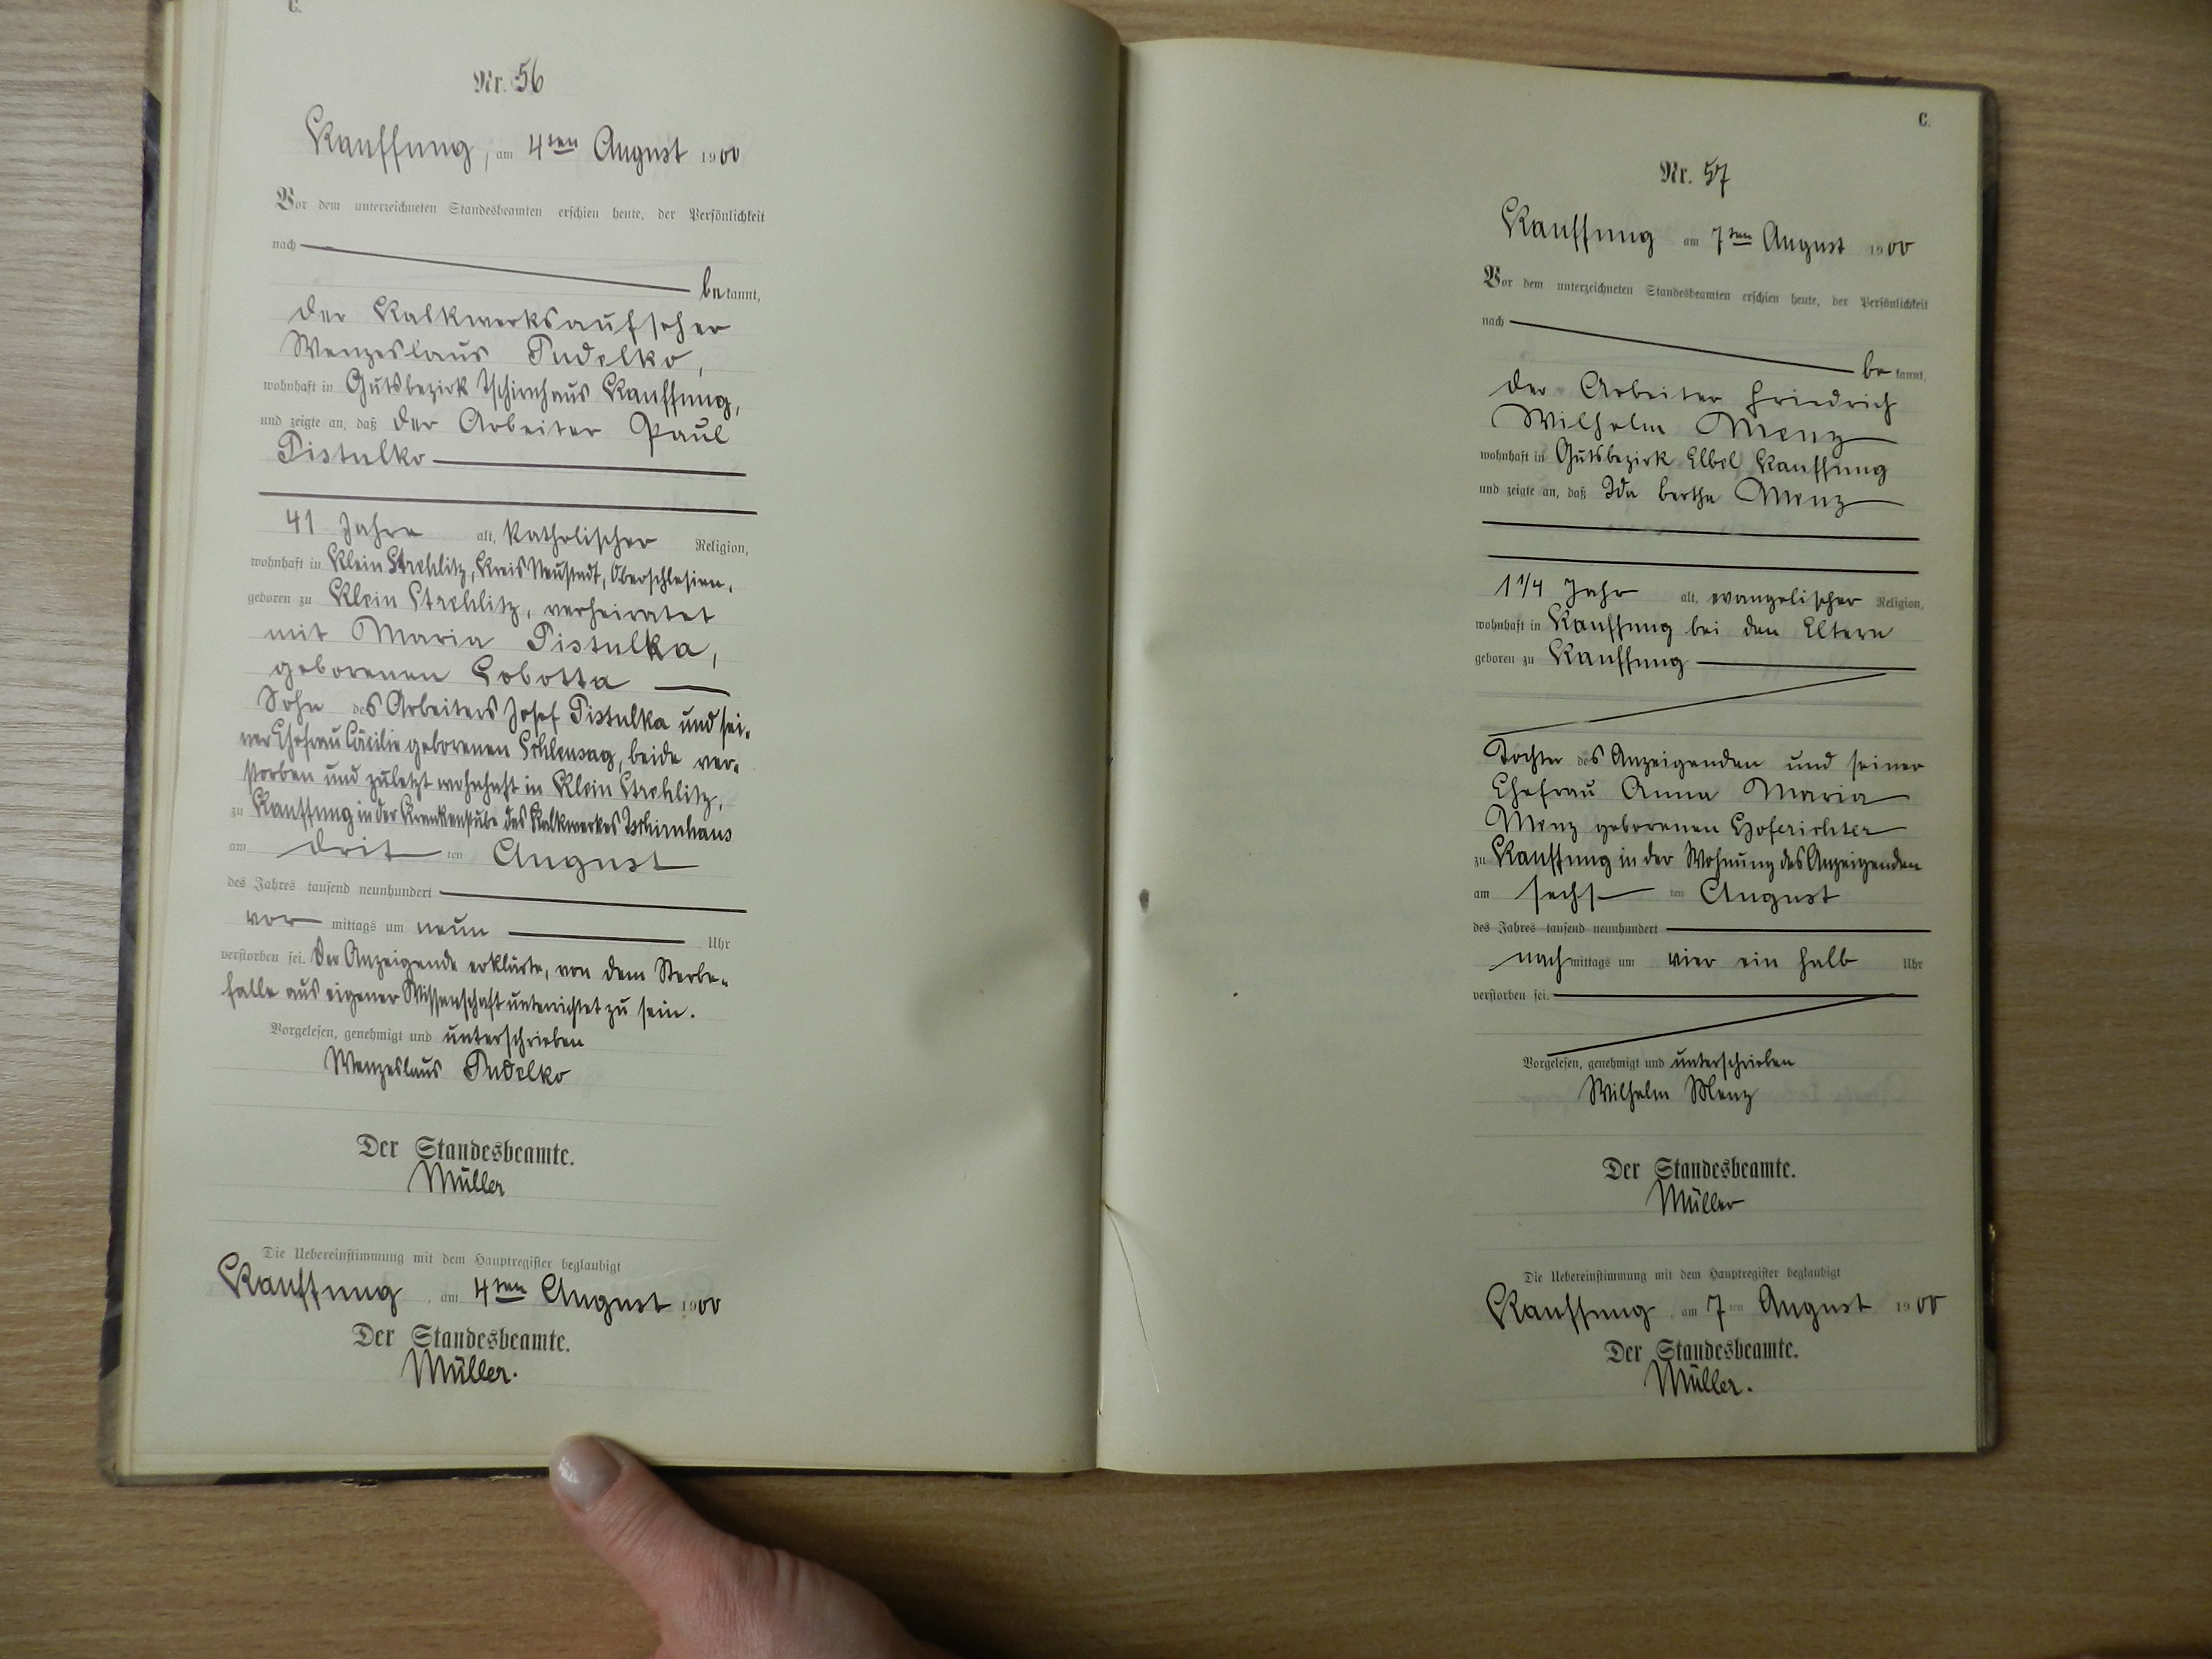 C.
Nr. 56
Kauffung, am 4ten August 1900
Vor dem unterzeichneten Standesbeamten erschien heute, der Persönlichkeit
nach
be kannt,
der Kalkwerksaufseher
Wenzeslaus Pudelko,
wohnhaft in Gutsbezirk Tschirnhaus Kauffung,
und zeigte an, daß der Arbeiter Paul
Pistulka
41 Jahre alt, katholischer Religion,
wohnhaft in Klein Strehlitz, Kreis Neustadt, Oberschlesien,
geboren zu Klein Strehlitz, verheiratet
mit Maria Pistulka,
geborenen Lobotta
Sohn des Arbeiters Josef Pistulka und sei-
ner Ehefrau Cäcilie geborenen beide ver-
storben und zuletzt wohnhaft in Klein Strehlitz,
zu Kauffung in der Krankenstube des Kalkwerkes Tschirnhaus
am drit ten August
des Jahres tausend neunhundert
vor mittags um neun Uhr
verstorben sei. Der Anzeigende erklärte, von dem Sterbe-
falle aus eigener Wissenschaft unterrichtet zu sein.
Vorgelesen, genehmigt und unterschrieben
Wenzeslaus Pudelko
Der Standesbeamte.
Müller
Die Uebereinstimmung mit dem Hauptregister beglaubigt
Kauffung, am 4ten August 1900
Der Standesbeamte.
Müller.
C.
Nr. 57
Kauffung am 7ten August 1900
Vor dem unterzeichneten Standesbeamten erschien heute, der Persönlichkeit
nach
be kannt,
der Arbeiter Friedrich
Wilhelm Menz
wohnhaft in Gutsbezirk Elbel Kauffung
und zeigte an, daß Ida Bertha Menz
1 1/4 Jahr alt, evangelischer Religion,
wohnhaft in Kauffung bei den Eltern
geboren zu Kauffung
Tochter des Anzeigenden und seiner
Ehefrau Anna Maria
Menz geborenen Hoferichter
zu Kauffung in der Wohnung des Anzeigenden
am sechs ten August
des Jahres tausend neunhundert
nach mittags um vier ein halb Uhr
verstorben sei.
Vorgelesen, genehmigt und unterschrieben
Wilhelm Menz
Der Standesbeamte.
Müller
Die Uebereinstimmung mit dem Hauptregister beglaubigt
Kauffung, am 7ten August 1900
Der Standesbeamte.
Müller.